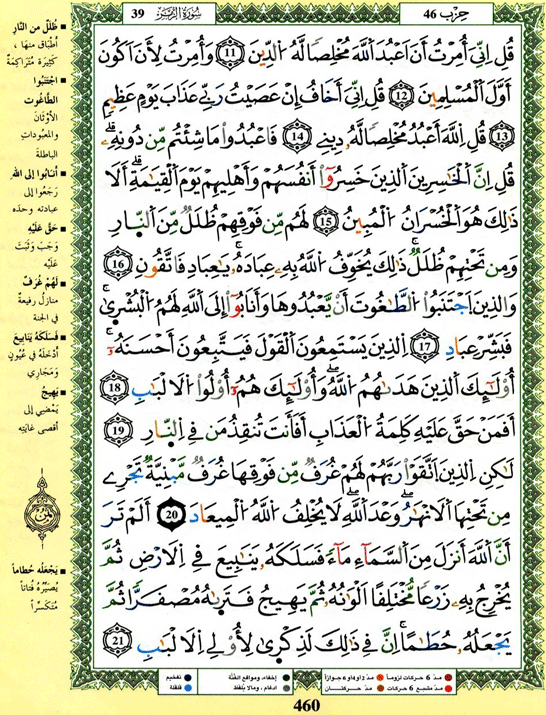 حِزْب 46
سُورَةُ الزُّمَر 39
قُلِ اِنِّيَ أُمِرْتُ أَنَ اَعْبُدَ اَللَّهَ مُخْلِصاً لَّهُ اُلدِّينَ 11 وَأُمِرْتُ لِأَنَ اَكُونَ
أَوَّلَ اَلْمُسْلِمِينَ 12 قُلِ اِنِّيَ أَخَافُ إِنْ عَصَيْتُ رَبِّے عَذَابَ يَوْمٍ عَظِيمٍ
13 قُلِ اِللَّهَ أَعْبُدُ مُخْلِصاً لَّهُۥ دِينِے 14 فَاعْبُدُواْ مَا شِئْتُم مِّن دُونِهِۦ
قُلِ اِنَّ اَلْخَٰسِرِينَ اَلذِينَ خَسِرُوٓاْ أَنفُسَهُمْ وَأَهْلِيهِمْ يَوْمَ اَلْقِيَٰمَةِ أَلَا
ذَٰلِكَ هُوَ اَلْخُسْرَانُ اُلْمُبِينُ 15 لَهُم مِّن فَوْقِهِمْ ظُلَلٌ مِّنَ اَلنّ۪ارِ
وَمِن تَحْتِهِمْ ظُلَلٌ ذَٰلِكَ يُخَوِّفُ اُللَّهُ بِهِۦ عِبَادَهُۥ يَٰعِبَادِ فَاتَّقُونِ 16
وَالذِينَ اَجْتَنَبُواْ اُلطَّٰغُوتَ أَنْ يَّعْبُدُوهَا وَأَنَابُوٓاْ إِلَى اَللَّهِ لَهُمُ اُلْبُشْر۪ىٰ
فَبَشِّرْ عِبَادِ 17 اِلذِينَ يَسْتَمِعُونَ اَلْقَوْلَ فَيَتَّبِعُونَ أَحْسَنَهُۥٓ
أُوْلَٰٓئِكَ اَلذِينَ هَد۪ىٰهُمُ اُللَّهُ وَأُوْلَٰٓئِكَ هُمُۥٓ أُوْلُواْ اُلَالْبَٰبِ 18
أَفَمَنْ حَقَّ عَلَيْهِ كَلِمَةُ اُلْعَذَابِ أَفَأَنتَ تُنقِذُ مَن فِے اِلنّ۪ارِ 19
لَٰكِنِ اِلذِينَ اَتَّقَوْاْ رَبَّهُمْ لَهُمْ غُرَفٌ مِّن فَوْقِهَا غُرَفٌ مَّبْنِيَّةٌ تَجْرِے
مِن تَحْتِهَا اَلَانْهَٰرُ وَعْدَ اَللَّهِ لَا يُخْلِفُ اُللَّهُ اُلْمِيعَادَ 20 أَلَمْ تَرَ
أَنَّ اَللَّهَ أَنزَلَ مِنَ اَلسَّمَآءِ مَآءً فَسَلَكَهُۥ يَنَٰبِيعَ فِے اِلَارْضِ ثُمَّ
يُخْرِجُ بِهِۦ زَرْعاً مُّخْتَلِفاً اَلْوَٰنُهُۥ ثُمَّ يَهِيجُ فَتَر۪ىٰهُ مُصْفَرّاً ثُمَّ
يَجْعَلُهُۥ حُطَٰماً اِنَّ فِے ذَٰلِكَ لَذِكْر۪ىٰ لِأُوْلِے اِلَالْبَٰبِ 21
ظُلَلٌ من النَّارِ
أطْبَاقٌ منها،
كَثِيرَة مُتَرَاكِمَةٌ
اجْتَنَبُوا
الطَّاغُوت
الأوْثَانَ
والمعبوداتِ
الباطلة
أنَابُوا إلى الله
رَجَعُوا إلى
عبادته وحدَه
حَقَّ عَلَيْهِ
وَجَبَ وَثَبَتَ
عَلَيْه
لَهُمْ غُرَفٌ
منازلُ رفيعةٌ
في الجنة
فَسَلَكَهُ يَنَابِيعَ
أدْخَلَهُ في عُيُونٍ
وَمَجَارِي
يَهِيجُ
يَمْضِي إلى
أقصى غايته
يَجْعَلُه حُطَاماً
يُصَيِّرُهُ فُتَاتاً
مُتَكَسِّراً
مدّ 6 حركات لزوماً
مدّ 2 أو 4 أو 6 جوازاً
إخفاء، ومواقع الغُنَّة
تفخيم
مدّ مشبع 6 حركات
مدّ حركتان
ادغام، وما لا يُلفَظ
قلقلة
460